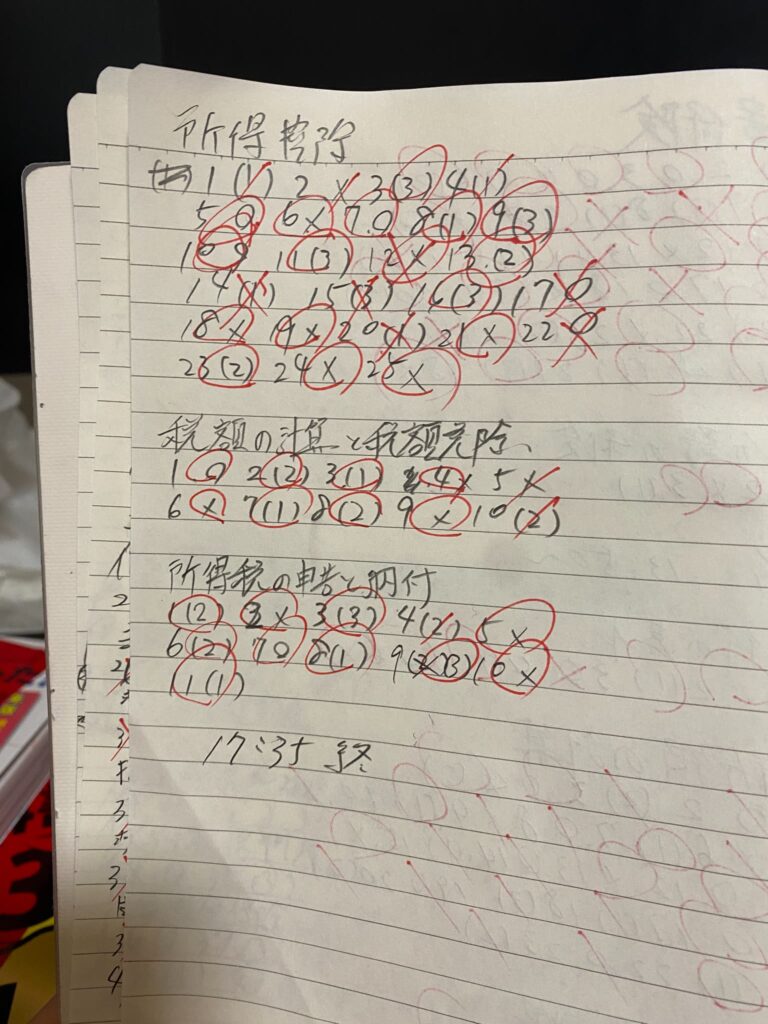 所得控除
1 (1) 2 × 3 (3) 4 (1)
5 0 6 × 7.0 8 (1) 9 (3)
10 0 11 (3) 12 × 13.(2)
14 (1) 15 (3) 16 (3) 17 0
18 × 19 × 20 (1) 21 × 22 0
23 (2) 24 × 25 ×
税額の計算と税額控除、
1 0 2 (2) 3 (1) 4 × 5 ×
6 × 7 (1) 8 (2) 9 × 10 (2)
所得税の申告と納付
1 (2) 2 × 3 (3) 4 (2) 5 ×
6 (2) 7 0 8 (1) 9 (3) 10 ×
11 (1)
17:35 終